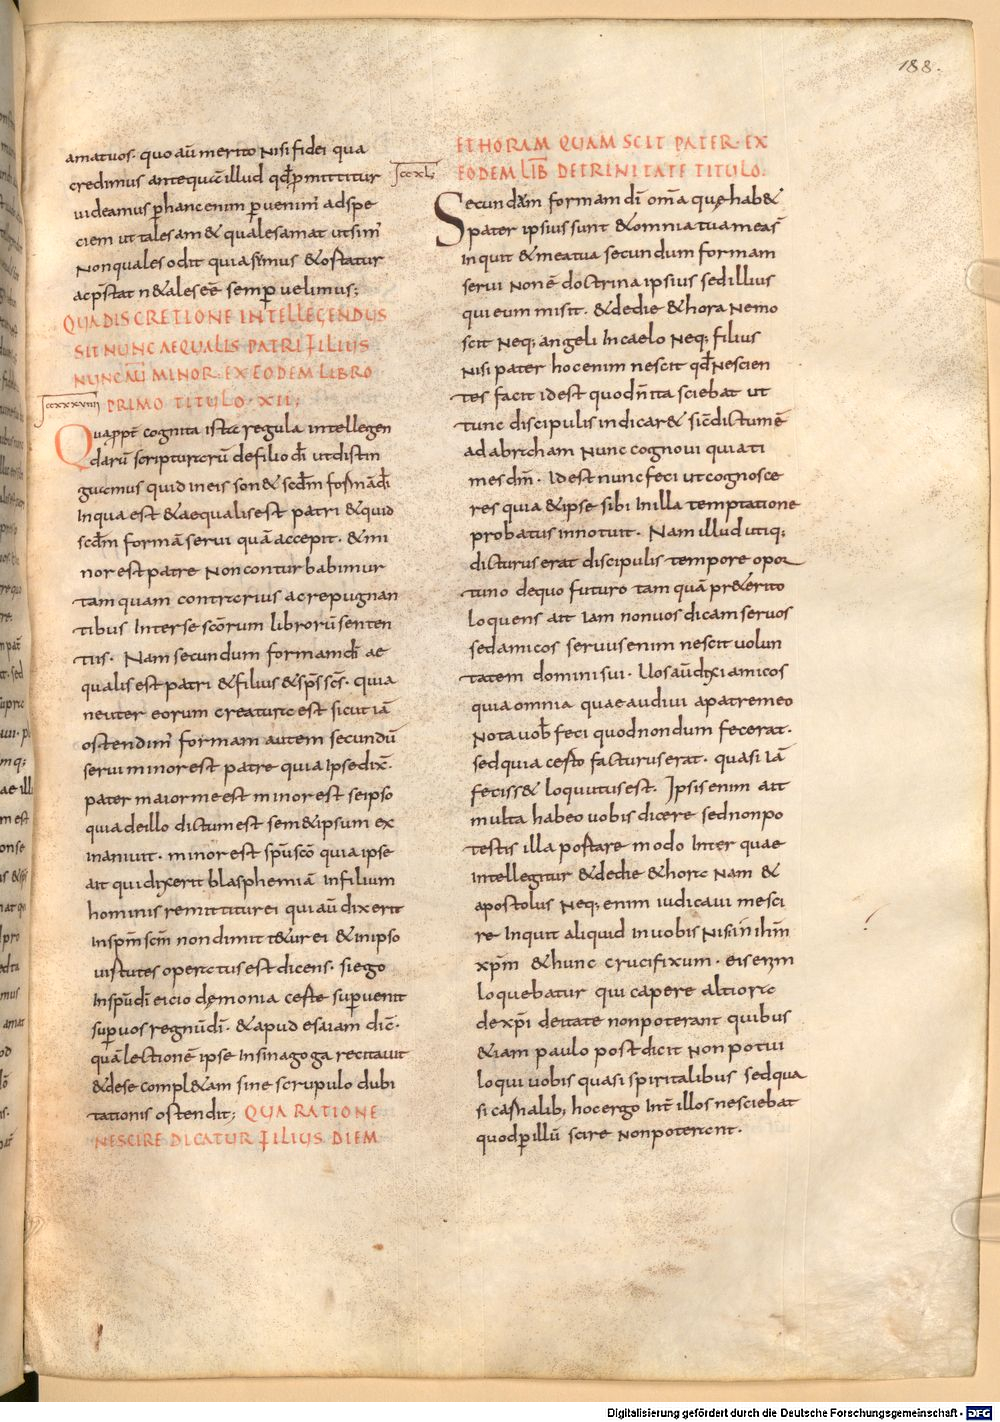 188.
amat uos. quo aū merito nisi fidei qua
credimus antequā illud qđ ꝑmittitur
uideamus ꝑ hanc enim ꝑuenim̄ ad spe
ciem ut tales am& quales amat ut sim̄
Non quales odit quia sumus & ostatur
ac p̄stat n& ales eē semꝑ uelimus;
QUA DISCRETIONE INTELLEGENDUS
SIT NUNC AEQUALIS PATRI FILIUS
NUNC AŪ MINOR. EX EODEM LIBRO
ccxxxviiii PRIMO TITULO. XII;
Quappt̄ cognita ista regula intellegen
darū scripturarū de filio dī ut distin
guamus quid in eis son& scđm formā dī
In qua est & aequalis est patri & quid
scđm formā serui quā accepit. & mi
nor est patre Non conturbabimur
tamquam contrariis ac repugnan
tibus Inter se scōrum librorū senten
tiis. Nam secundum formam dī ae
qualis est patri & filius & sp̄s sc̄s. quia
neuter eorum creatura est sicut iā
ostendim̄ formam autem secundū
serui minor est patre quia Ipse dix̄.
pater maior me est minor est se ipso
quia de illo dictum est sem& ipsum ex
inaniuit. minor est sp̄u scō quia ipse
ait qui dixerit blasphemiā In filium
hominis remittitur ei qui aū dixerit
In sp̄m scm̄ non dimitt&ur ei & in ipso
uirtutes operatus est dicens. si ego
In sp̄u dī eicio dęmonia certe suꝑuenit
suꝑ uos regnū dī. & apud esaiam dic̄.
quā lectionē ipse In sinagoga recitauit
& de se compl&am sine scrupulo dubi
tationis ostendit; QUA RATIONE
NESCIRE DICATUR FILIUS DIEM
ET HORAM QUAM SCIT PATER. EX
ccxl EODEM LIB̄ DE TRINITATE TITULO.
Secundam formam dī om̄a quę hab&
pater ipsius sunt & omnia tua mea s̄
inquit & mea tua secundum formam
serui non ē doctrina ipsius sed illius
qui eum misit. & de die & hora nemo
scit neq; angeli In caelo neq; filius
Nisi pater hoc enim nescit qđ nescien
tes facit id est quod n̄ ita sciebat ut
tunc discipulis indicar& sic̄ dictum ē
ad abraham Nunc cognoui quia ti
mes dm̄. Id est nunc feci ut cognosce
res quia & ipse sibi In illa temptatione
probatus innotuit. Nam illud utiq;
dicturus erat discipulis tempore opor
tuno de quo futuro tamquā pr&erito
loquens ait Iam non uos dicam seruos
sed amicos seruus enim nescit uolun
tatem domini sui. Uos aū dixi amicos
quia omnia quae audiui a patre meo
Nota uob̄ feci quod nondum fecerat.
sed quia certo facturus erat. quasi Iā
feciss& loquutus est. Ipsis enim ait
multa habeo uobis dicere sed non po
testis illa portare modo Inter quae
Intellegitur & de die & hora Nam &
apostolus Neq; enim iudicaui me sci
re Inquit aliquid In uobis Nisi in ihm̄
xp̄m & hunc crucifixum. eis enim
loquebatur qui capere altiora
de xp̄i deitate non poterant quibus
& iam paulo post dicit Non potui
loqui uobis quasi spiritalibus sed qua
si carnalib; hoc ergo Int̄ illos nesciebat
quod ꝑ illū scire Non poterant.
Digitalisierung gefördert durch die Deutsche Forschungsgemeinschaft - DFG